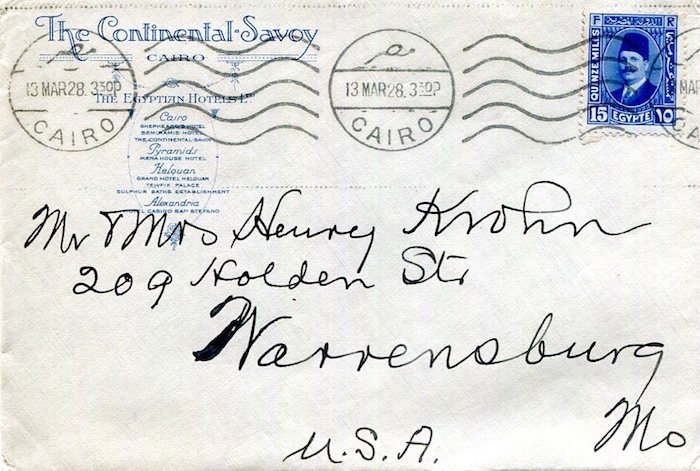 The Continental-Savoy
CAIRO
13 MAR 28. 3 30P
CAIRO
13 MAR 28. 3 30P
CAIRO
MAR
THE EGYPTIAN HOTELS Lᵀᴰ
Cairo
SHEPHEARD'S HOTEL
SEMIRAMIS HOTEL
THE CONTINENTAL-SAVOY
Pyramids
MENA HOUSE HOTEL
Helouan
GRAND HOTEL HELOUAN
TEWFIK PALACE
SULPHUR BATHS ESTABLISHMENT
Alexandria
HOTEL CASINO SAN STEFANO
F R
QUINZE MILLS
15 EGYPTE ١٥
Mr & Mrs Henry Krohn
209 Holden Str
Warrensburg
Mo
U.S.A.